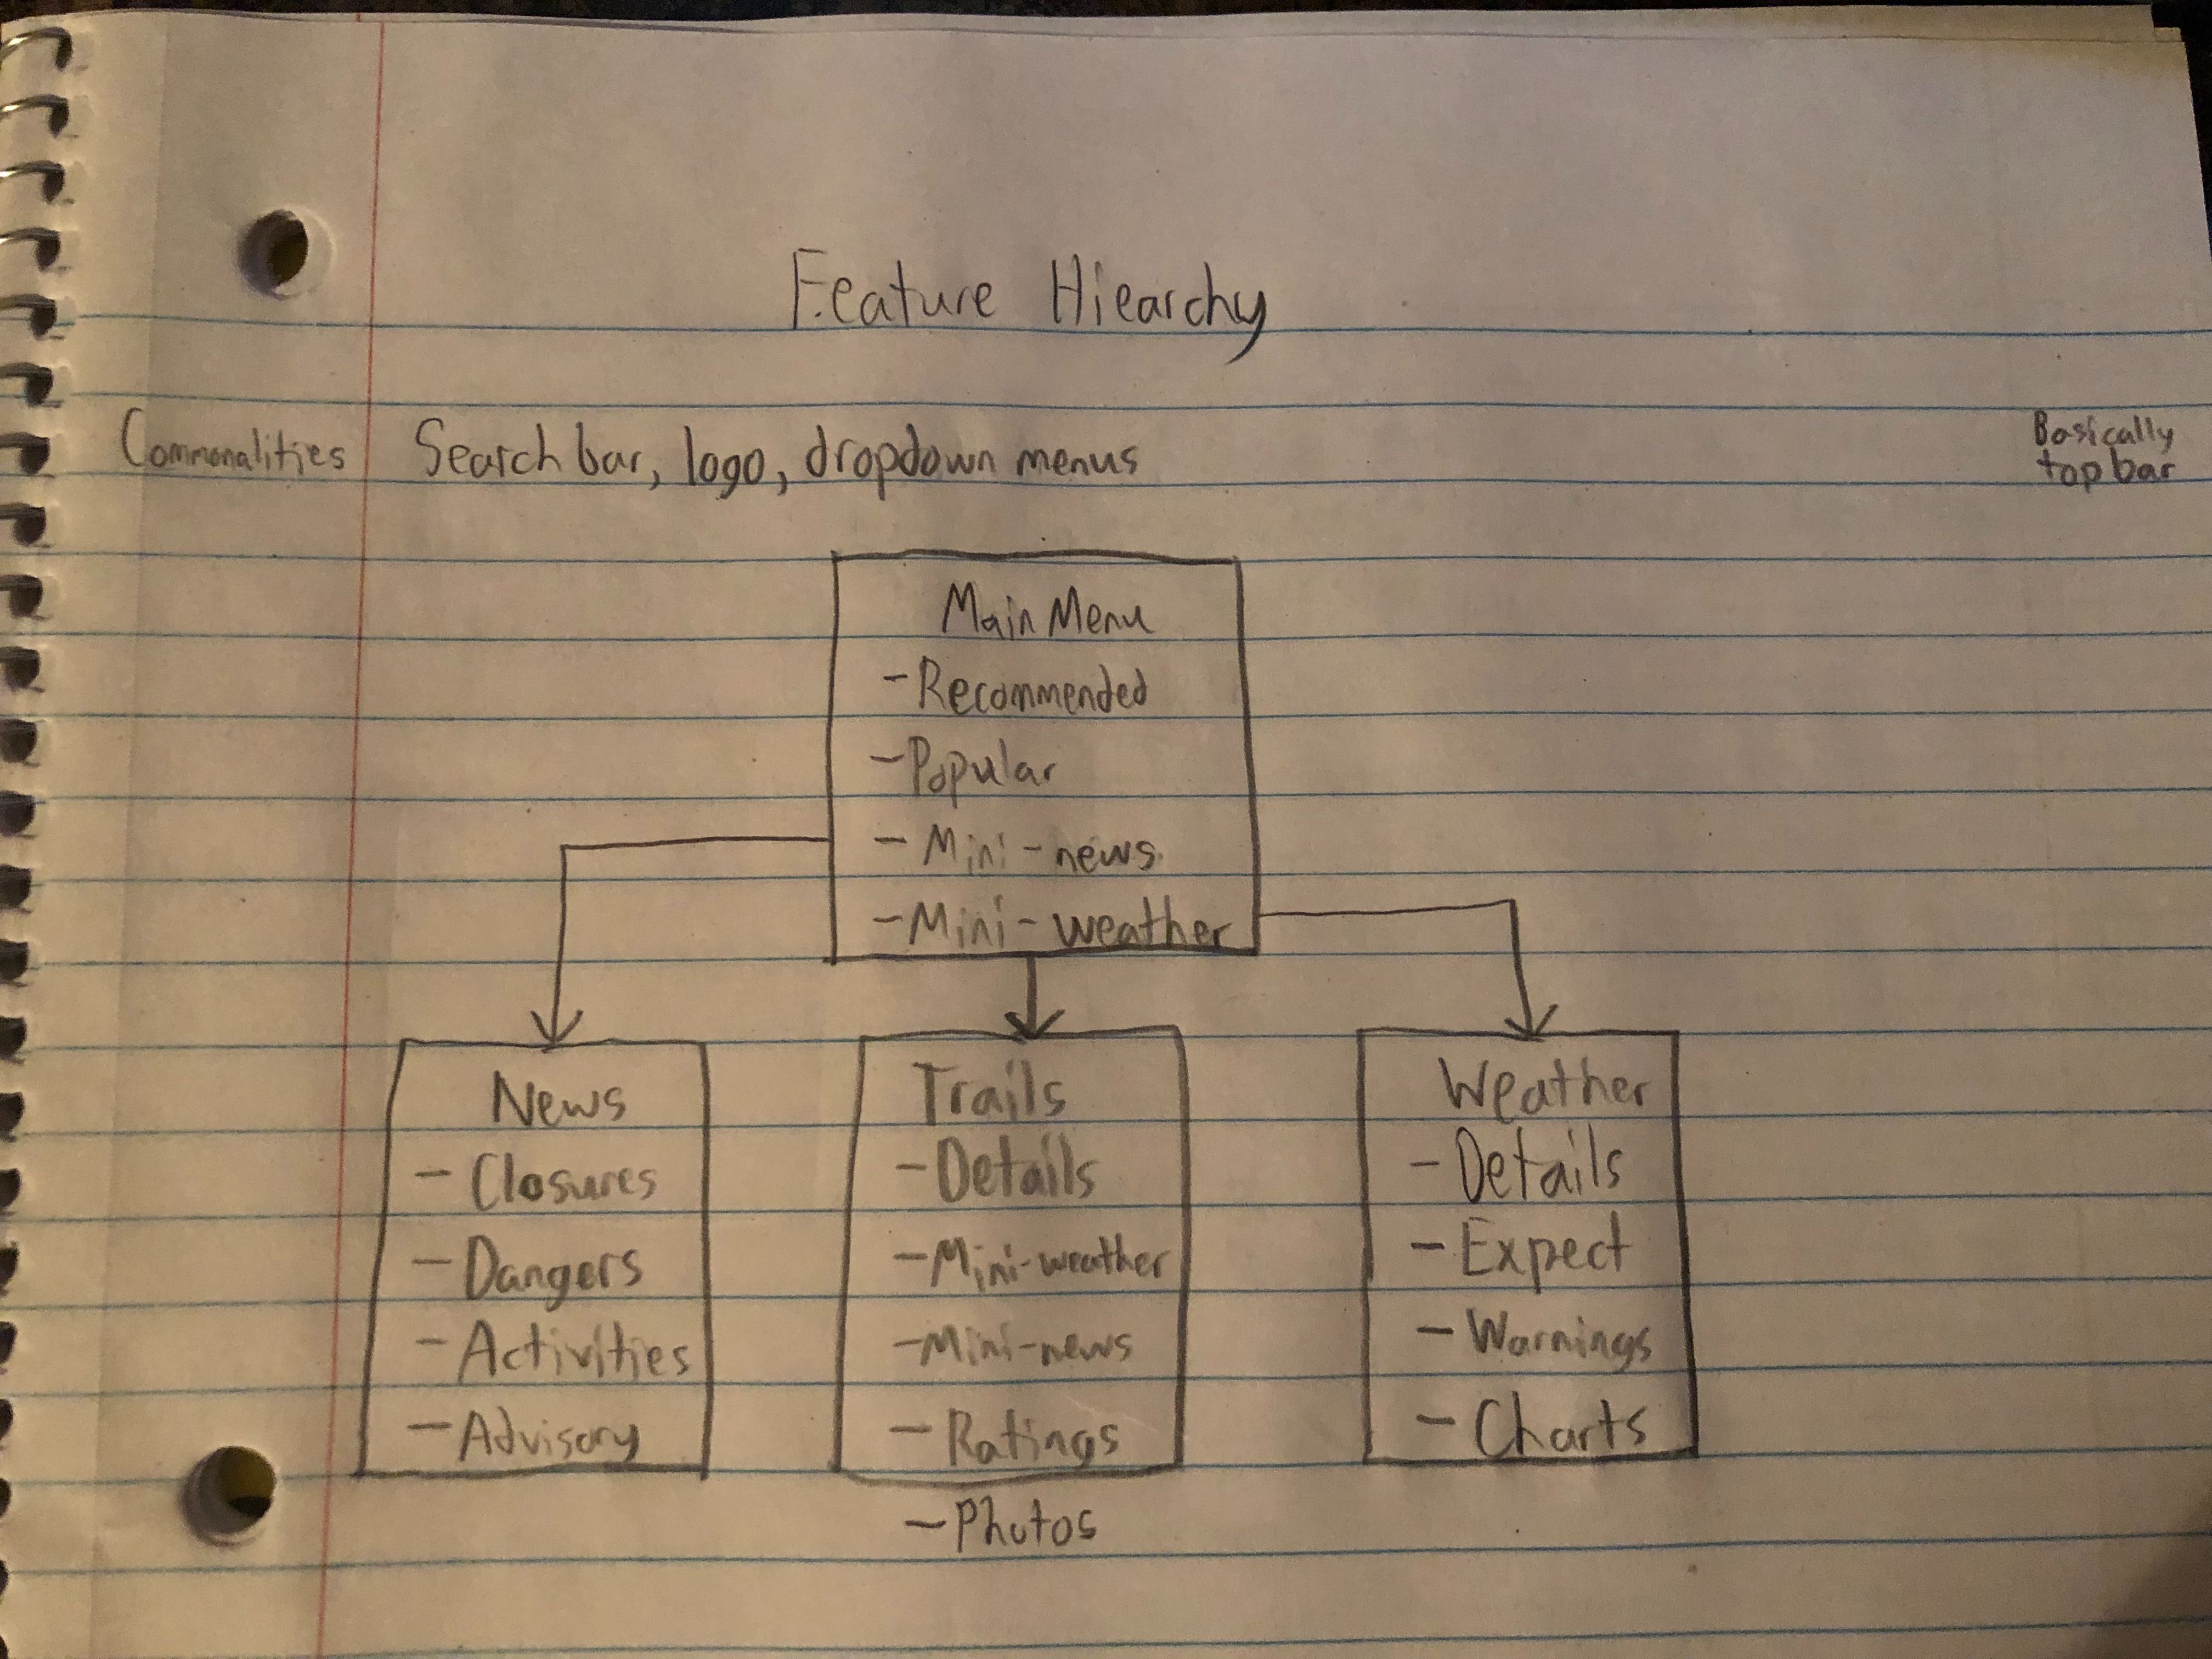 Feature Hiearchy
Commonalities Search bar, logo, dropdown menus
Basically
top bar
Main Menu
- Recommended
- Popular
- Mini-news
- Mini-weather
News
- Closures
- Dangers
- Activities
- Advisory
Trails
- Details
- Mini-weather
- Mini-news
- Ratings
- Photos
Weather
- Details
- Expect
- Warnings
- Charts